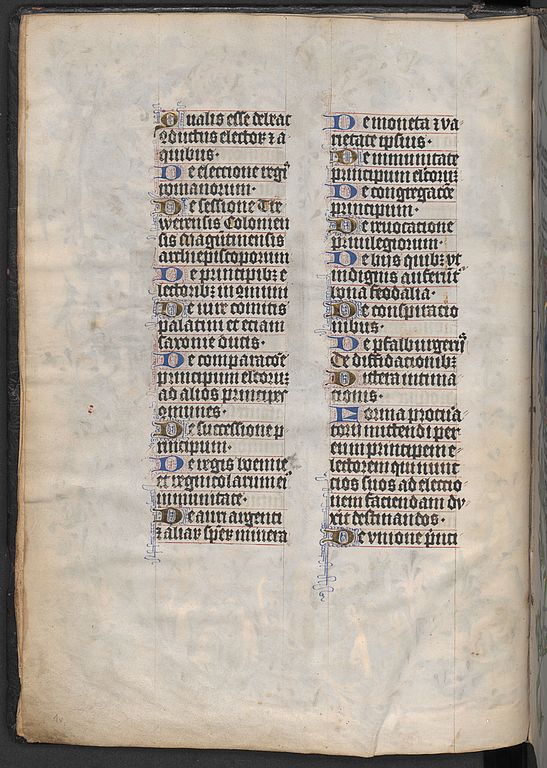 Qualis esse debeat
conductus elector⁊ et a
quibus·
De eleccione regis
romanorum·
De sessione Tre
werensis Colonien
sis et maguntinensis
archiepiscoporum
De principibꝫ e
lectoribꝫ in cōmuni
De iure comitis
palatini et etiam
saxonie ducis·
De comparacōe
principum elcorꝫ
ad alios principes
omnes·
De successione p
rincipum·
De regis boemie
et regnicolarum eiꝰ
inmunitate·
De auri argenti
⁊ aliaꝝ sper minera
De moneta ⁊ va
rietate ipsius·
De inmunitate
principum elcorꝫ
De congregacōe
principum·
De reuocatione
priuilegiorum·
De hiis quibꝫ vt
indignis auferūt᷑
bona feodalia·
De conspiratio
nibus·
De pfalburgerijs
De diffidacionibꝫ
Littera intima
tionis·
Forma procura
torii mittendi per
eum principem e
lectorem qui nunt
cios suos ad electio
nem faciendam du
xit destinandos·
De vnione p̄nci